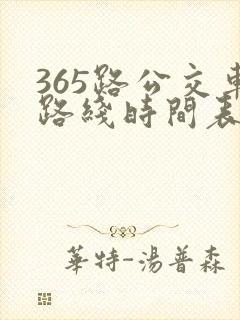 365路公交車
路綫時間表
華特-湯普森